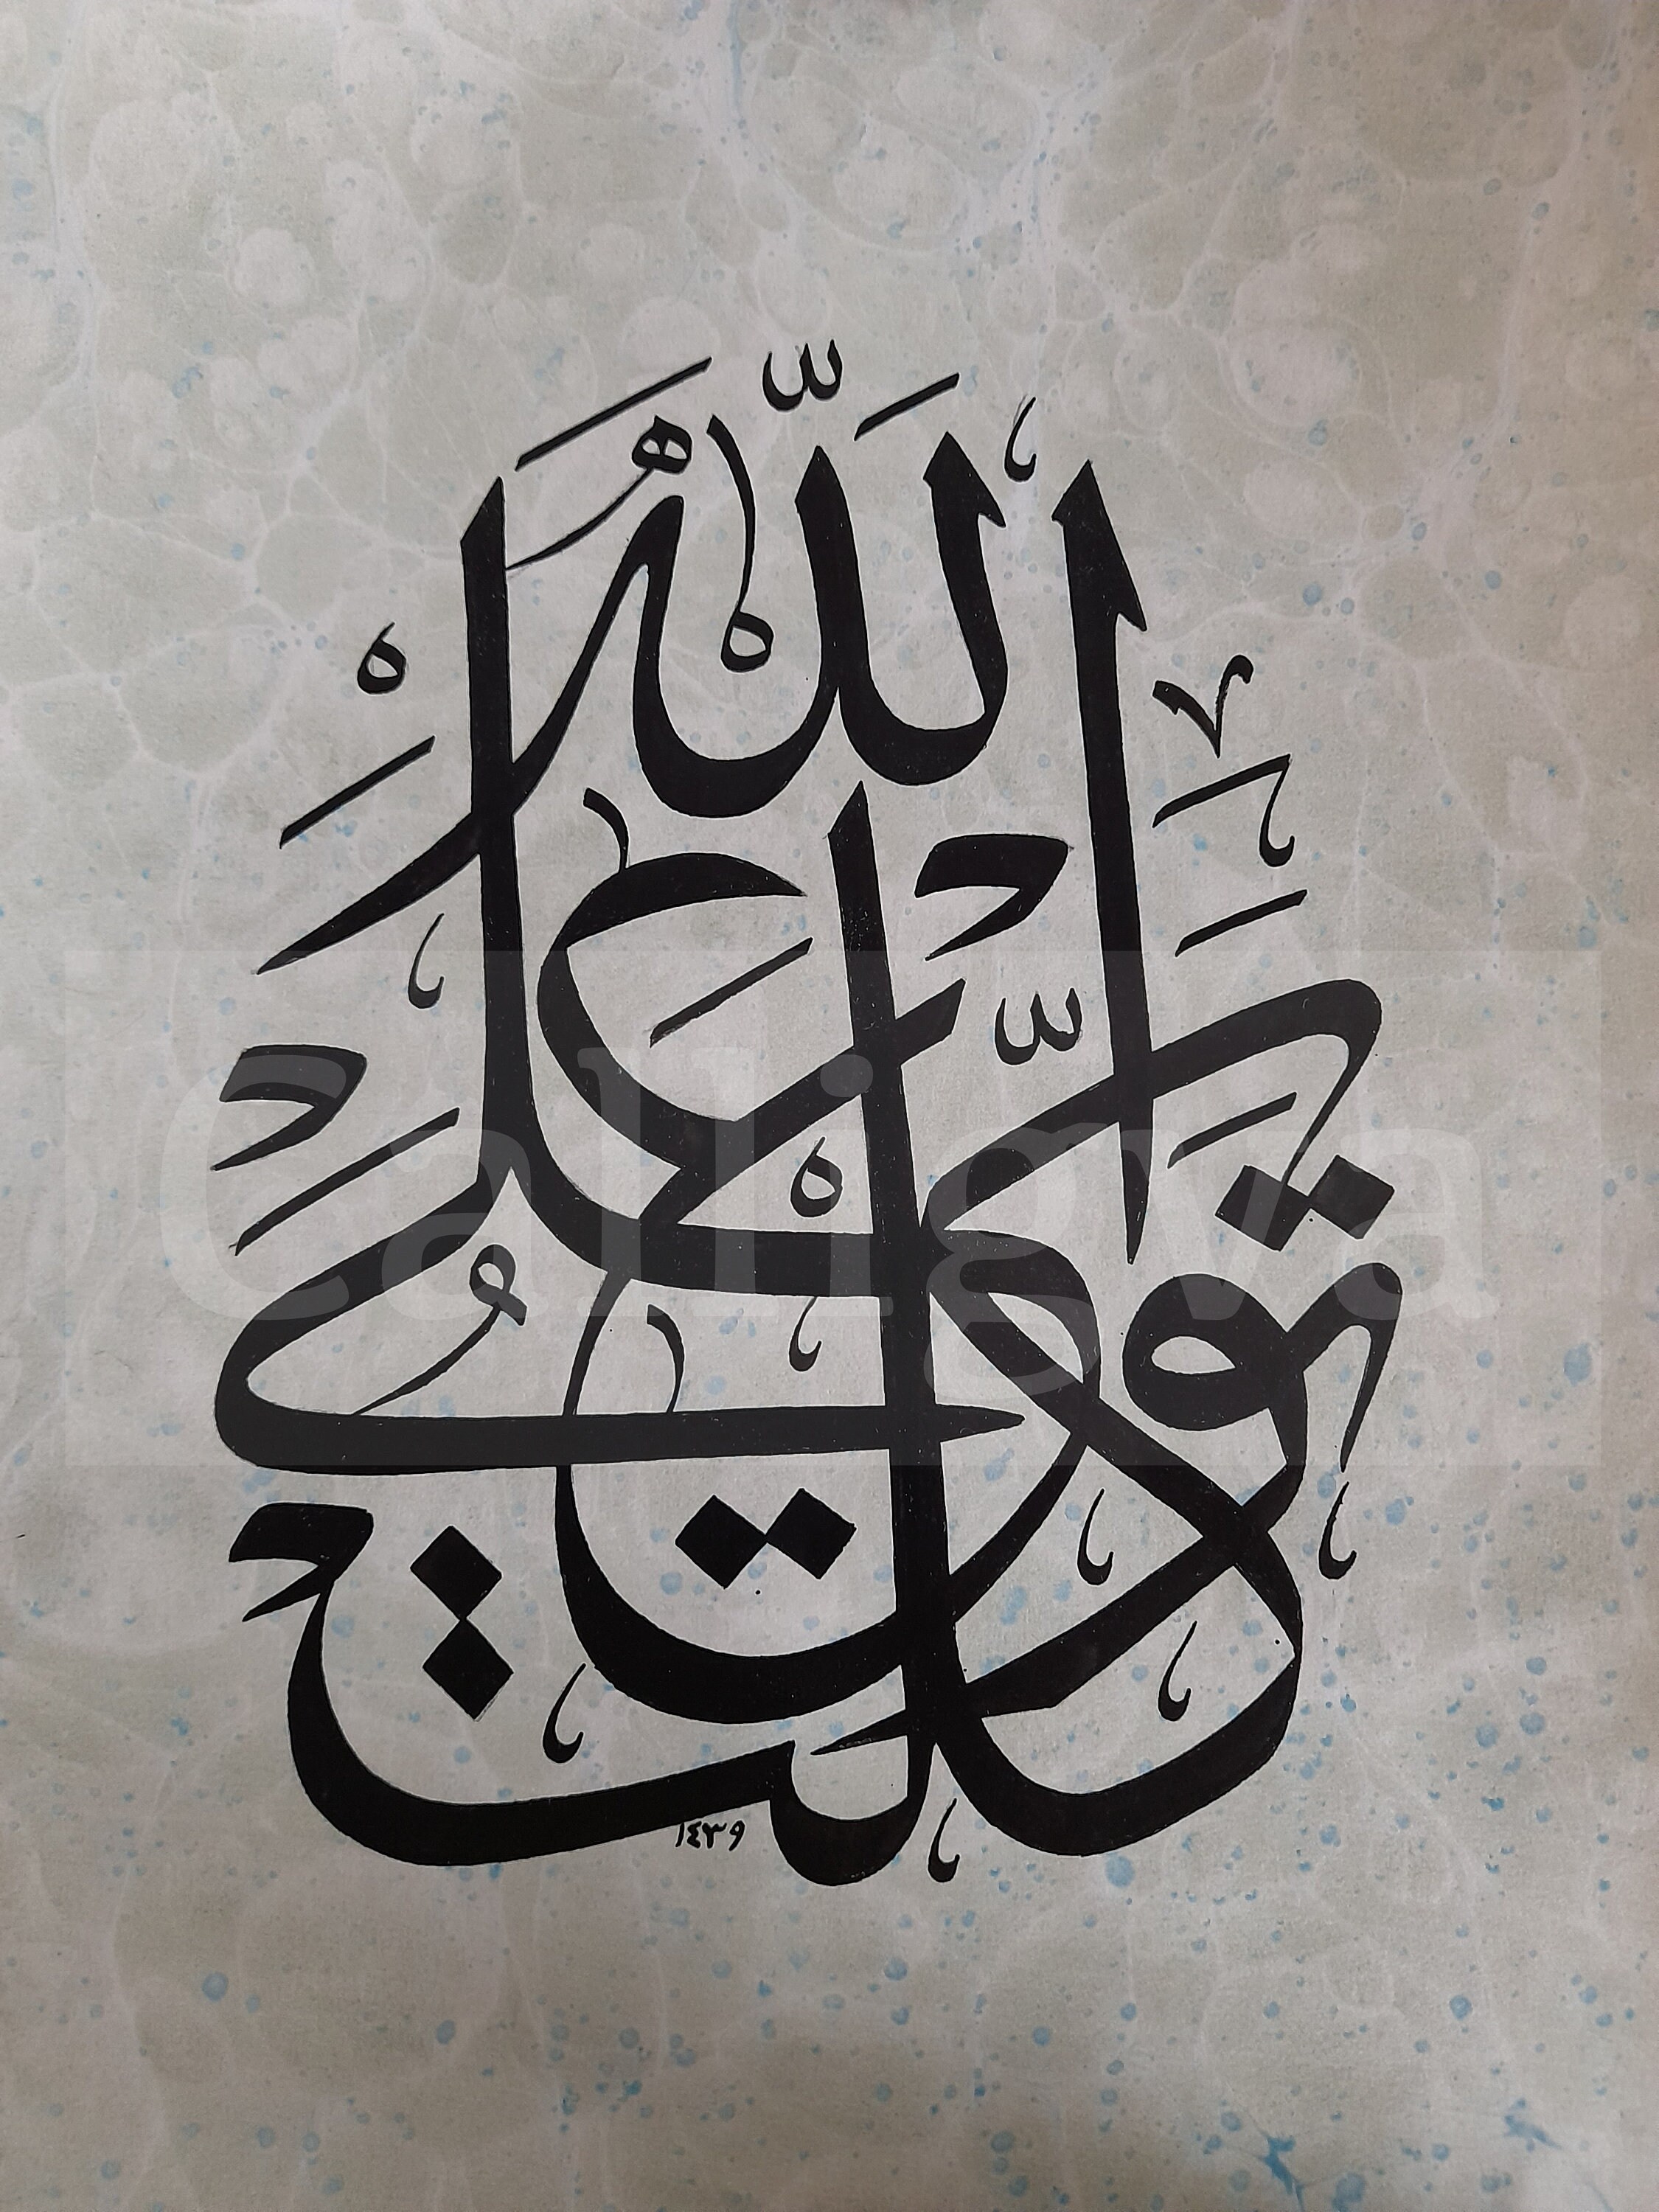 توكلت على الله
١٤٣٩
Calligva